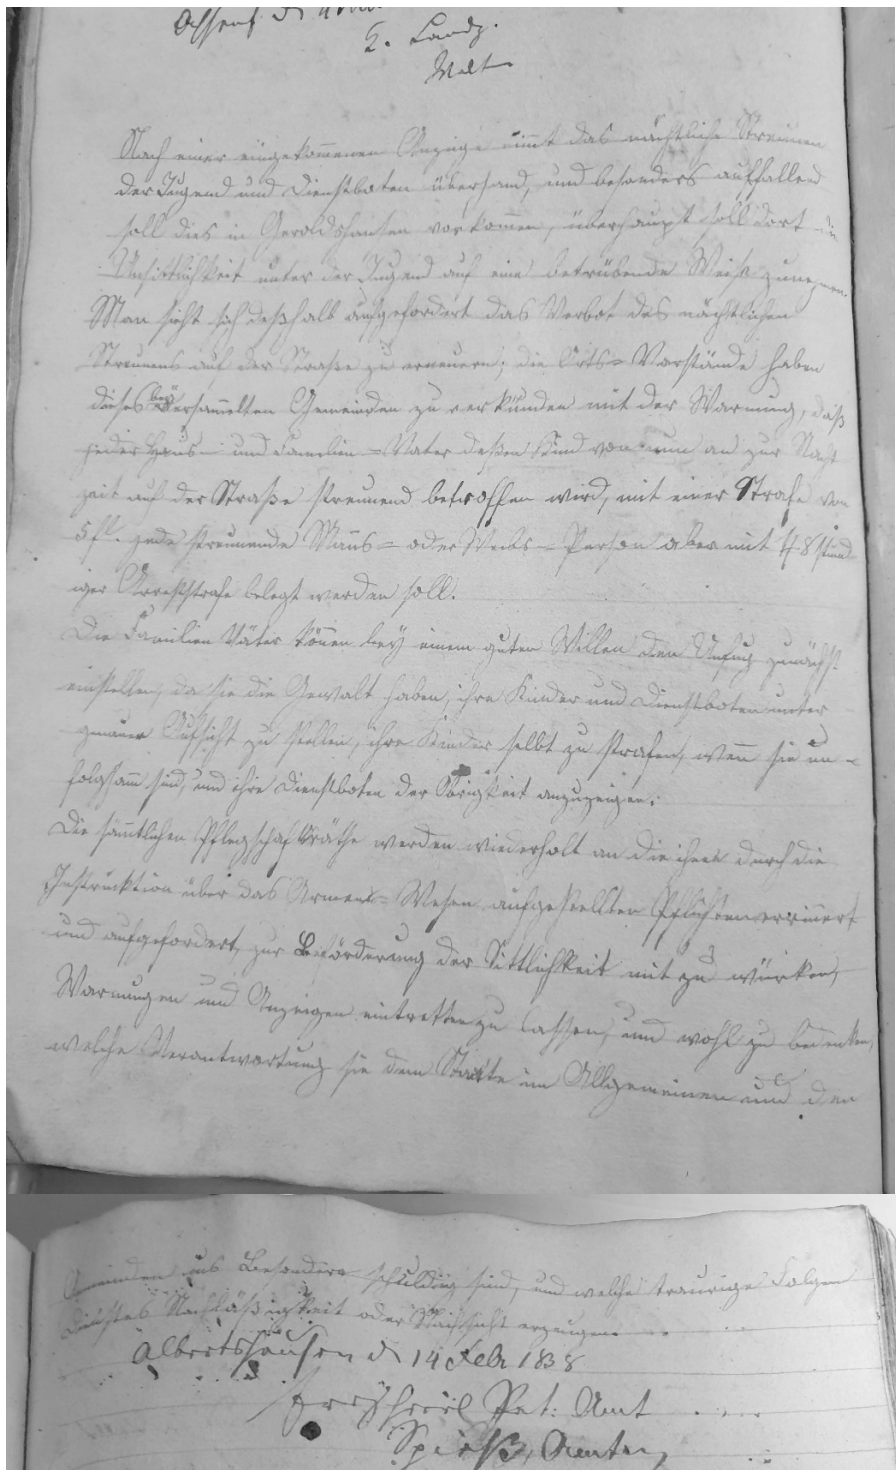 Ochsenf d
K. Landg.
Welt
Nach einer eingekommenen Anzeige nimmt das nächtliche Streunen
der Jugend und Dienstboten überhand, und besonders auffallend
soll dies in Geroldshausen vorkommen, überhaupt soll dort die
Unsittlichkeit unter der Jugend auf eine betrübende Weise zunehmen.
Man sieht sich deßhalb aufgefordert das Verbot des nächtlichen
Streunens auf der Straße zu erneuern; die Orts-Vorstände haben
dieses bey versammelten Gemeinden zu verkünden mit der Warnung, daß
jeder Haus- und Familien-Vater dessen Kind von nun an zur Nacht
zeit auf der Straße streunend betroffen wird, mit einer Strafe von
5 fl. jede streunende Manns- oder Weibs-Person aber mit 48 stünd
iger Arreststrafe belegt werden soll.
Die Familien Väter können bey einem guten Willen den Unfug zunächst
einstellen, da sie die Gewalt haben, ihre Kinder und Dienstboten unter
genauer Aufsicht zu stellen, ihre Kinder selbt zu strafen, wenn sie un-
folgsamm sind, und ihre Dienstboten der Obrigkeit anzuzeigen.
Die sämmtlichen Pflegschaftsräthe werden wiederholt an die ihnen durch die
Instruktion über das Armen-Wesen aufgestellten Pflichten erinnert
und aufgefordert, zur Beförderung der Sittlichkeit mit zu würken,
Warnungen und Anzeigen eintretten zu lassen, und wohl zu bedenken,
welche Verantwortung sie dem Staate im Allgemeinen und den
Gemeinden ins Besondere schuldig sind, und welche traurige Folgen
Nachläßigkeit oder Nachsicht erzeugen
Albertshausen d 14 Feb 1838
Pat: Amt
Spieß, Amtm